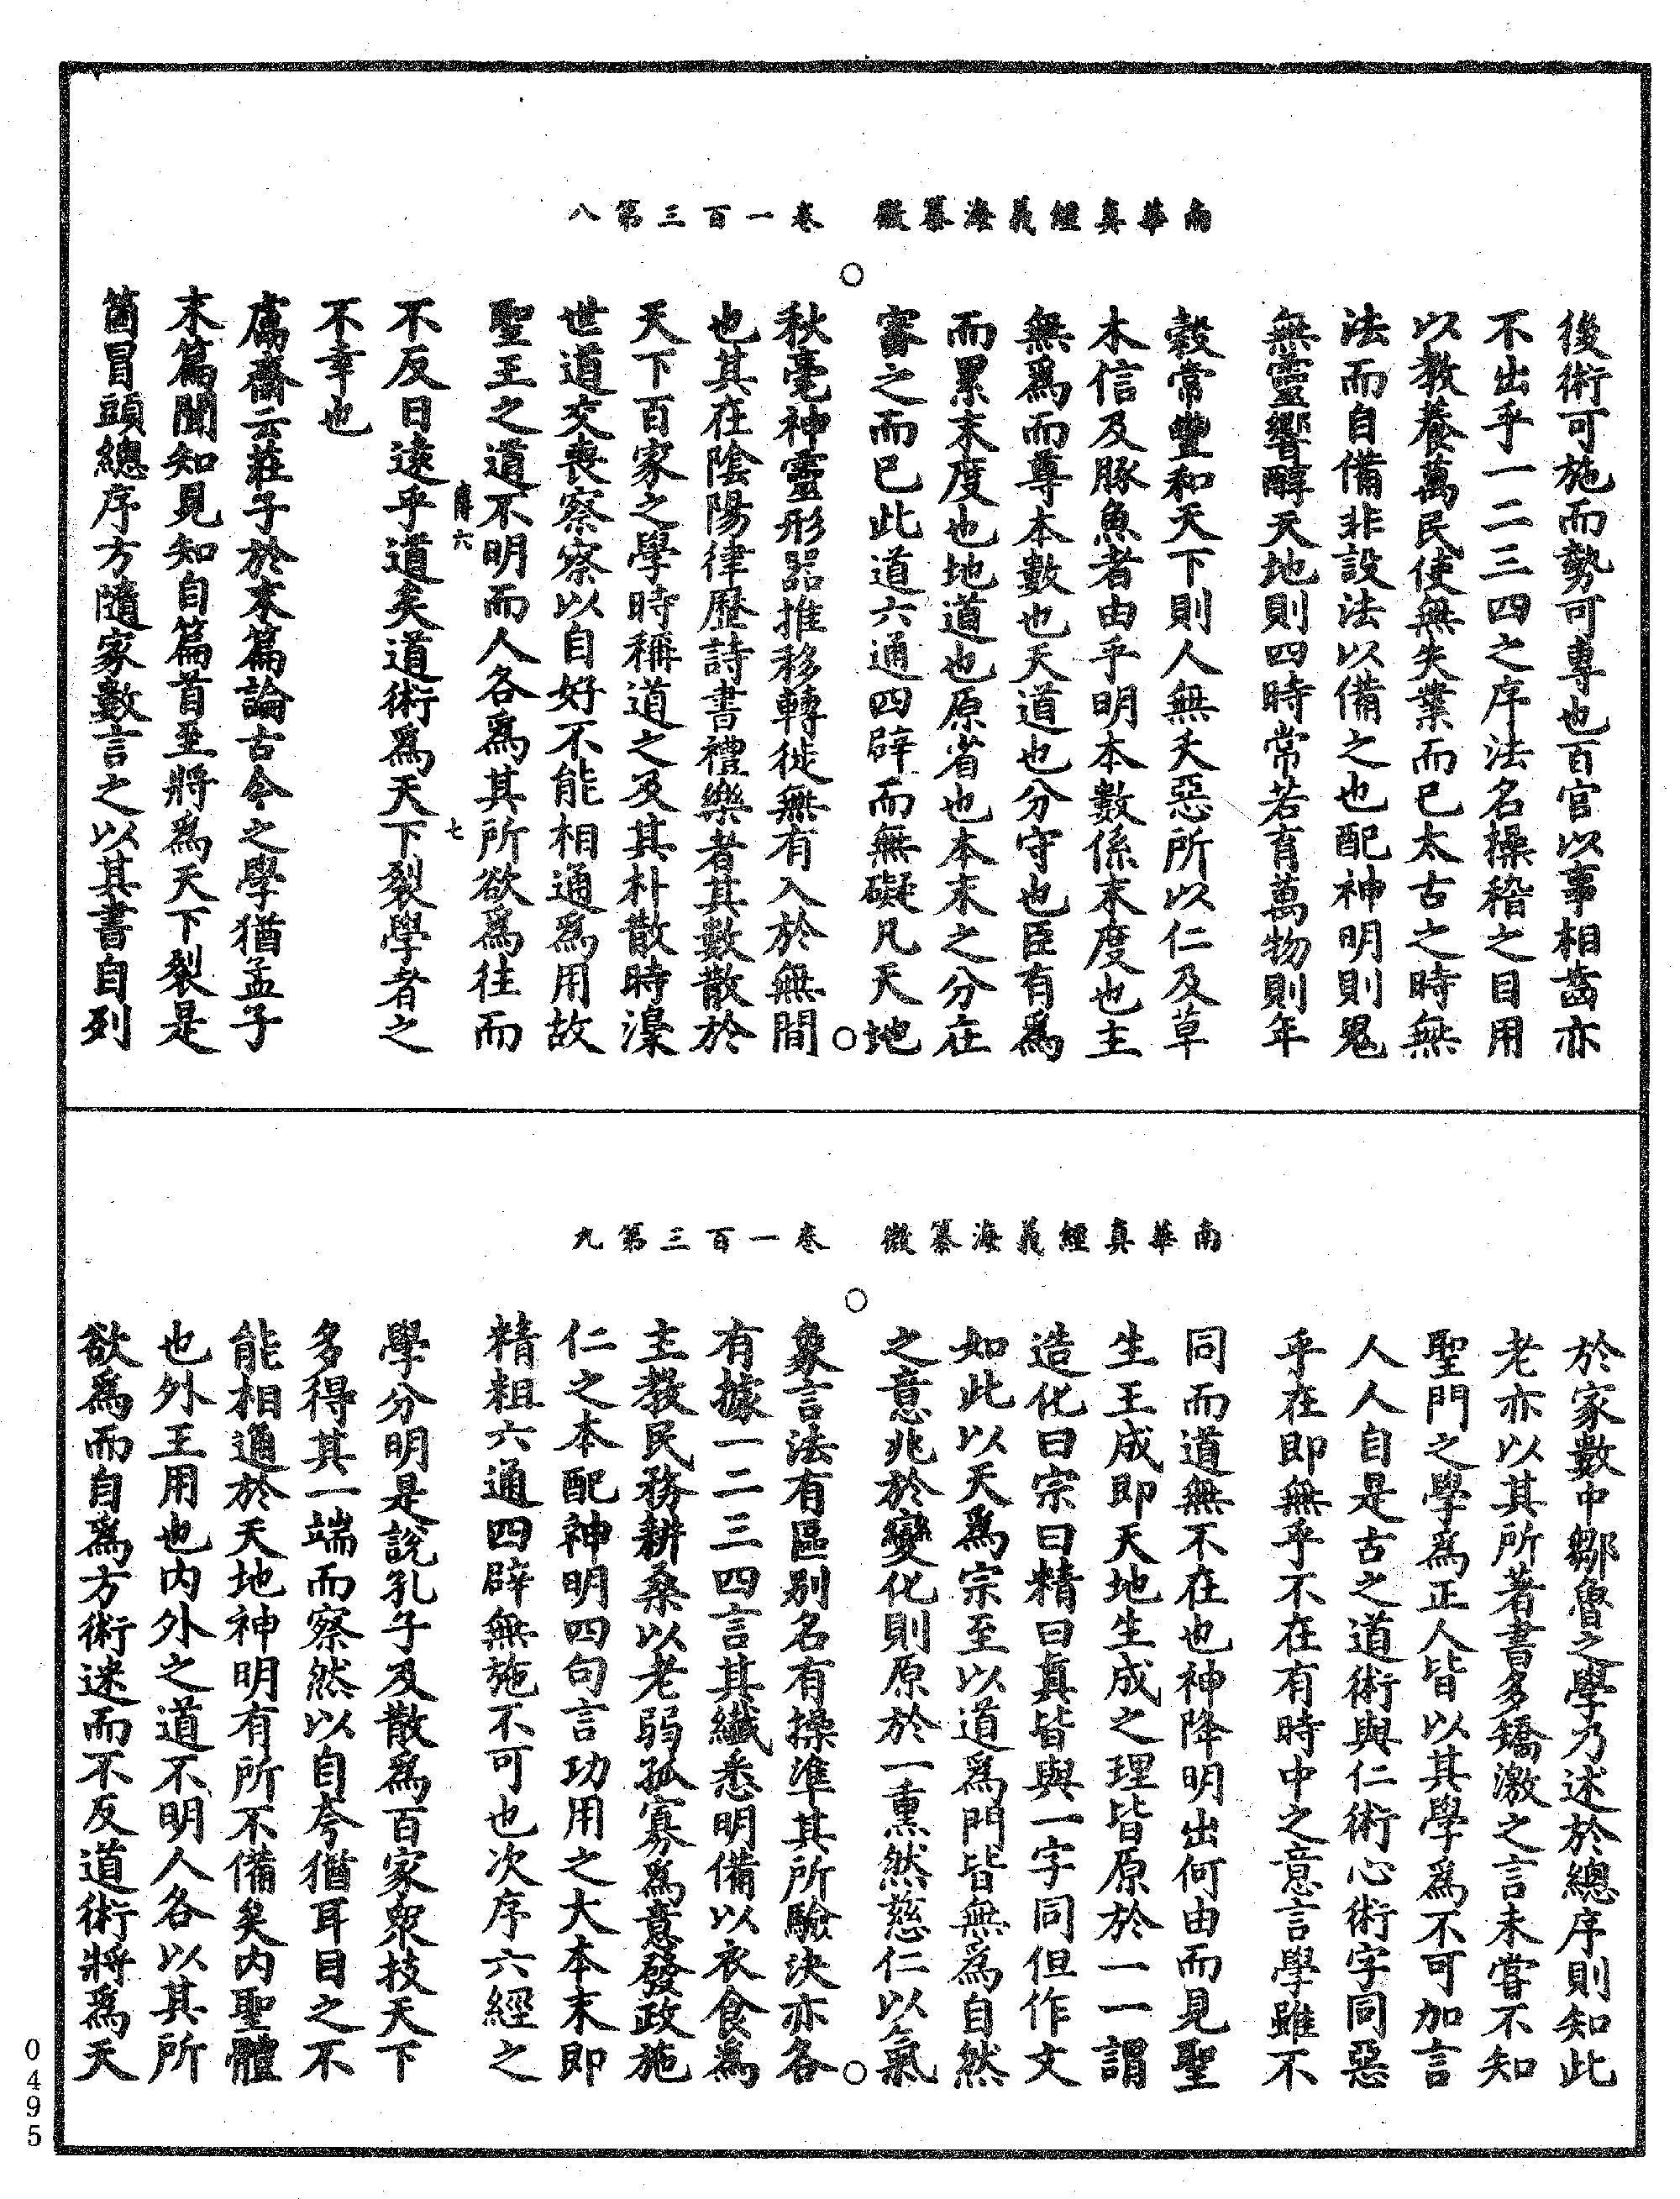 南華真經義海纂微　卷一百三第八
後術可施而勢可專也百官以事相齒亦
不出乎一二三四之序法名操稽之目用
以教養萬民使無失業而已太古之時無
法而自備非設法以備之也配神明則鬼
無靈響醇天地則四時常若育萬物則年
穀常豐和天下則人無夭惡所以仁及草
木信及豚魚者由乎明本數係末度也主
無爲而尊本數也天道也分守也臣有爲
而累末度也地道也原省也本末之分在
審之而已此道六通四辟而無礙凡天地
秋毫神靈形器推移轉徙無有入於無間
也其在陰陽律歷詩書禮樂者其數散於
天下百家之學時稱道之及其朴散時澆
世道交喪察察以自好不能相通爲用故
聖王之道不明而人各爲其所欲爲往而
六
七
不反日遠乎道矣道術爲天下裂學者之
不幸也
鬳齋云莊子於末篇論古今之學猶孟子
末篇聞知見知自篇首至將爲天下裂是
箇冒頭總序方隨家數言之以其書自列
南華真經義海纂微　卷一百三第九
於家數中鄒魯之學乃述於總序則知此
老亦以其所著書多矯激之言未嘗不知
聖門之學爲正人皆以其學爲不可加言
人人自是古之道術與仁術心術字同惡
乎在即無乎不在有時中之意言學雖不
同而道無不在也神降明出何由而見聖
生王成即天地生成之理皆原於一一謂
造化曰宗曰精曰真皆與一字同但作文
如此以天爲宗至以道爲門皆無爲自然
之意兆於變化則原於一熏然慈仁以氣
象言法有區别名有操準其所驗決亦各
有據一二三四言其纖悉明備以衣食為
主教民務耕桑以老弱孤寡爲意發政施
仁之本配神明四句言功用之大本末即
精粗六通四辟無施不可也次序六經之
學分明是説孔子及散爲百家衆技天下
多得其一端而察然以自夸猶耳目之不
能相通於天地神明有所不備矣内聖體
也外王用也内外之道不明人各以其所
欲爲而自爲方術迷而不反道術將爲天
0495